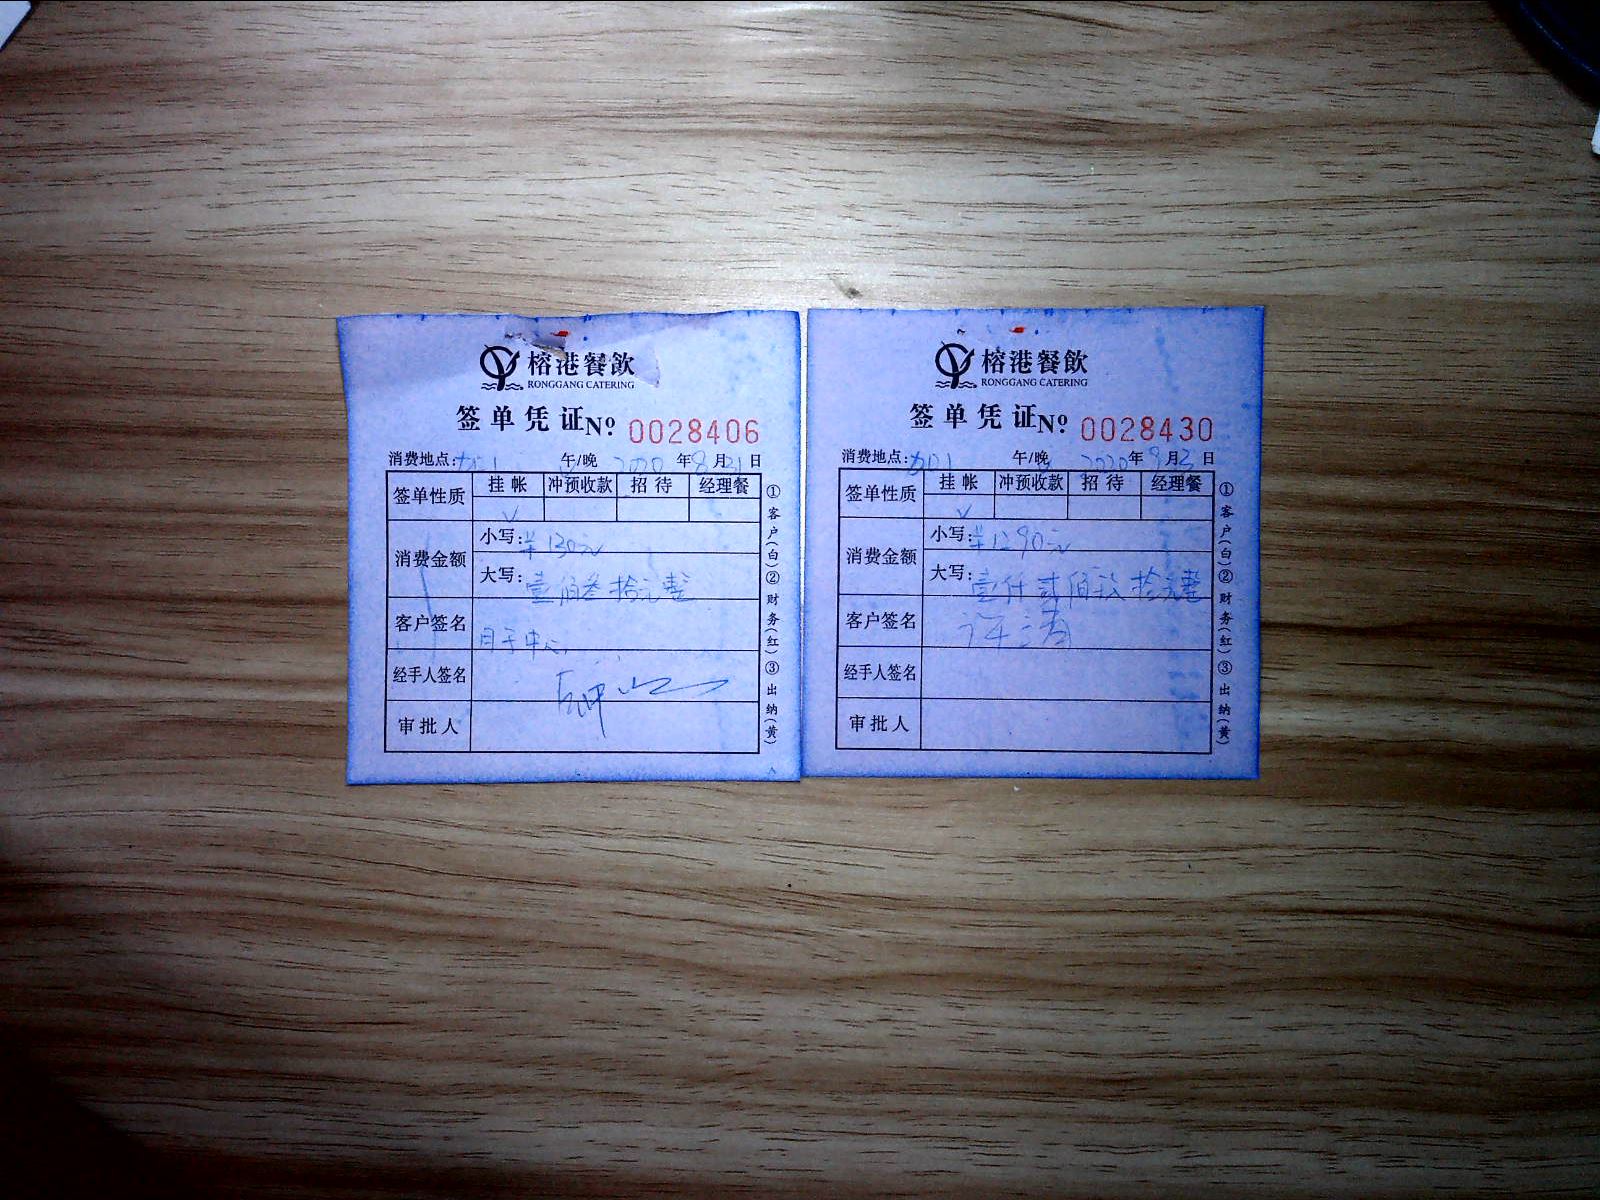 榕港餐飲
RONGGANG CATERING
签单凭证 No. 0028406
消费地点: 午/晚 2020年8月21日
签单性质 挂帐 冲预收款 招待 经理餐
√
消费金额
小写: ¥130元
大写: 壹佰叁拾元整
客户签名 月子中心
经手人签名
审批人
①客户(白)②财务(红)③出纳(黄)
榕港餐飲
RONGGANG CATERING
签单凭证 No. 0028430
消费地点: 午/晚 2020年9月3日
签单性质 挂帐 冲预收款 招待 经理餐
√
消费金额
小写: ¥1290元
大写: 壹仟贰佰玖拾元整
客户签名
经手人签名
审批人
①客户(白)②财务(红)③出纳(黄)